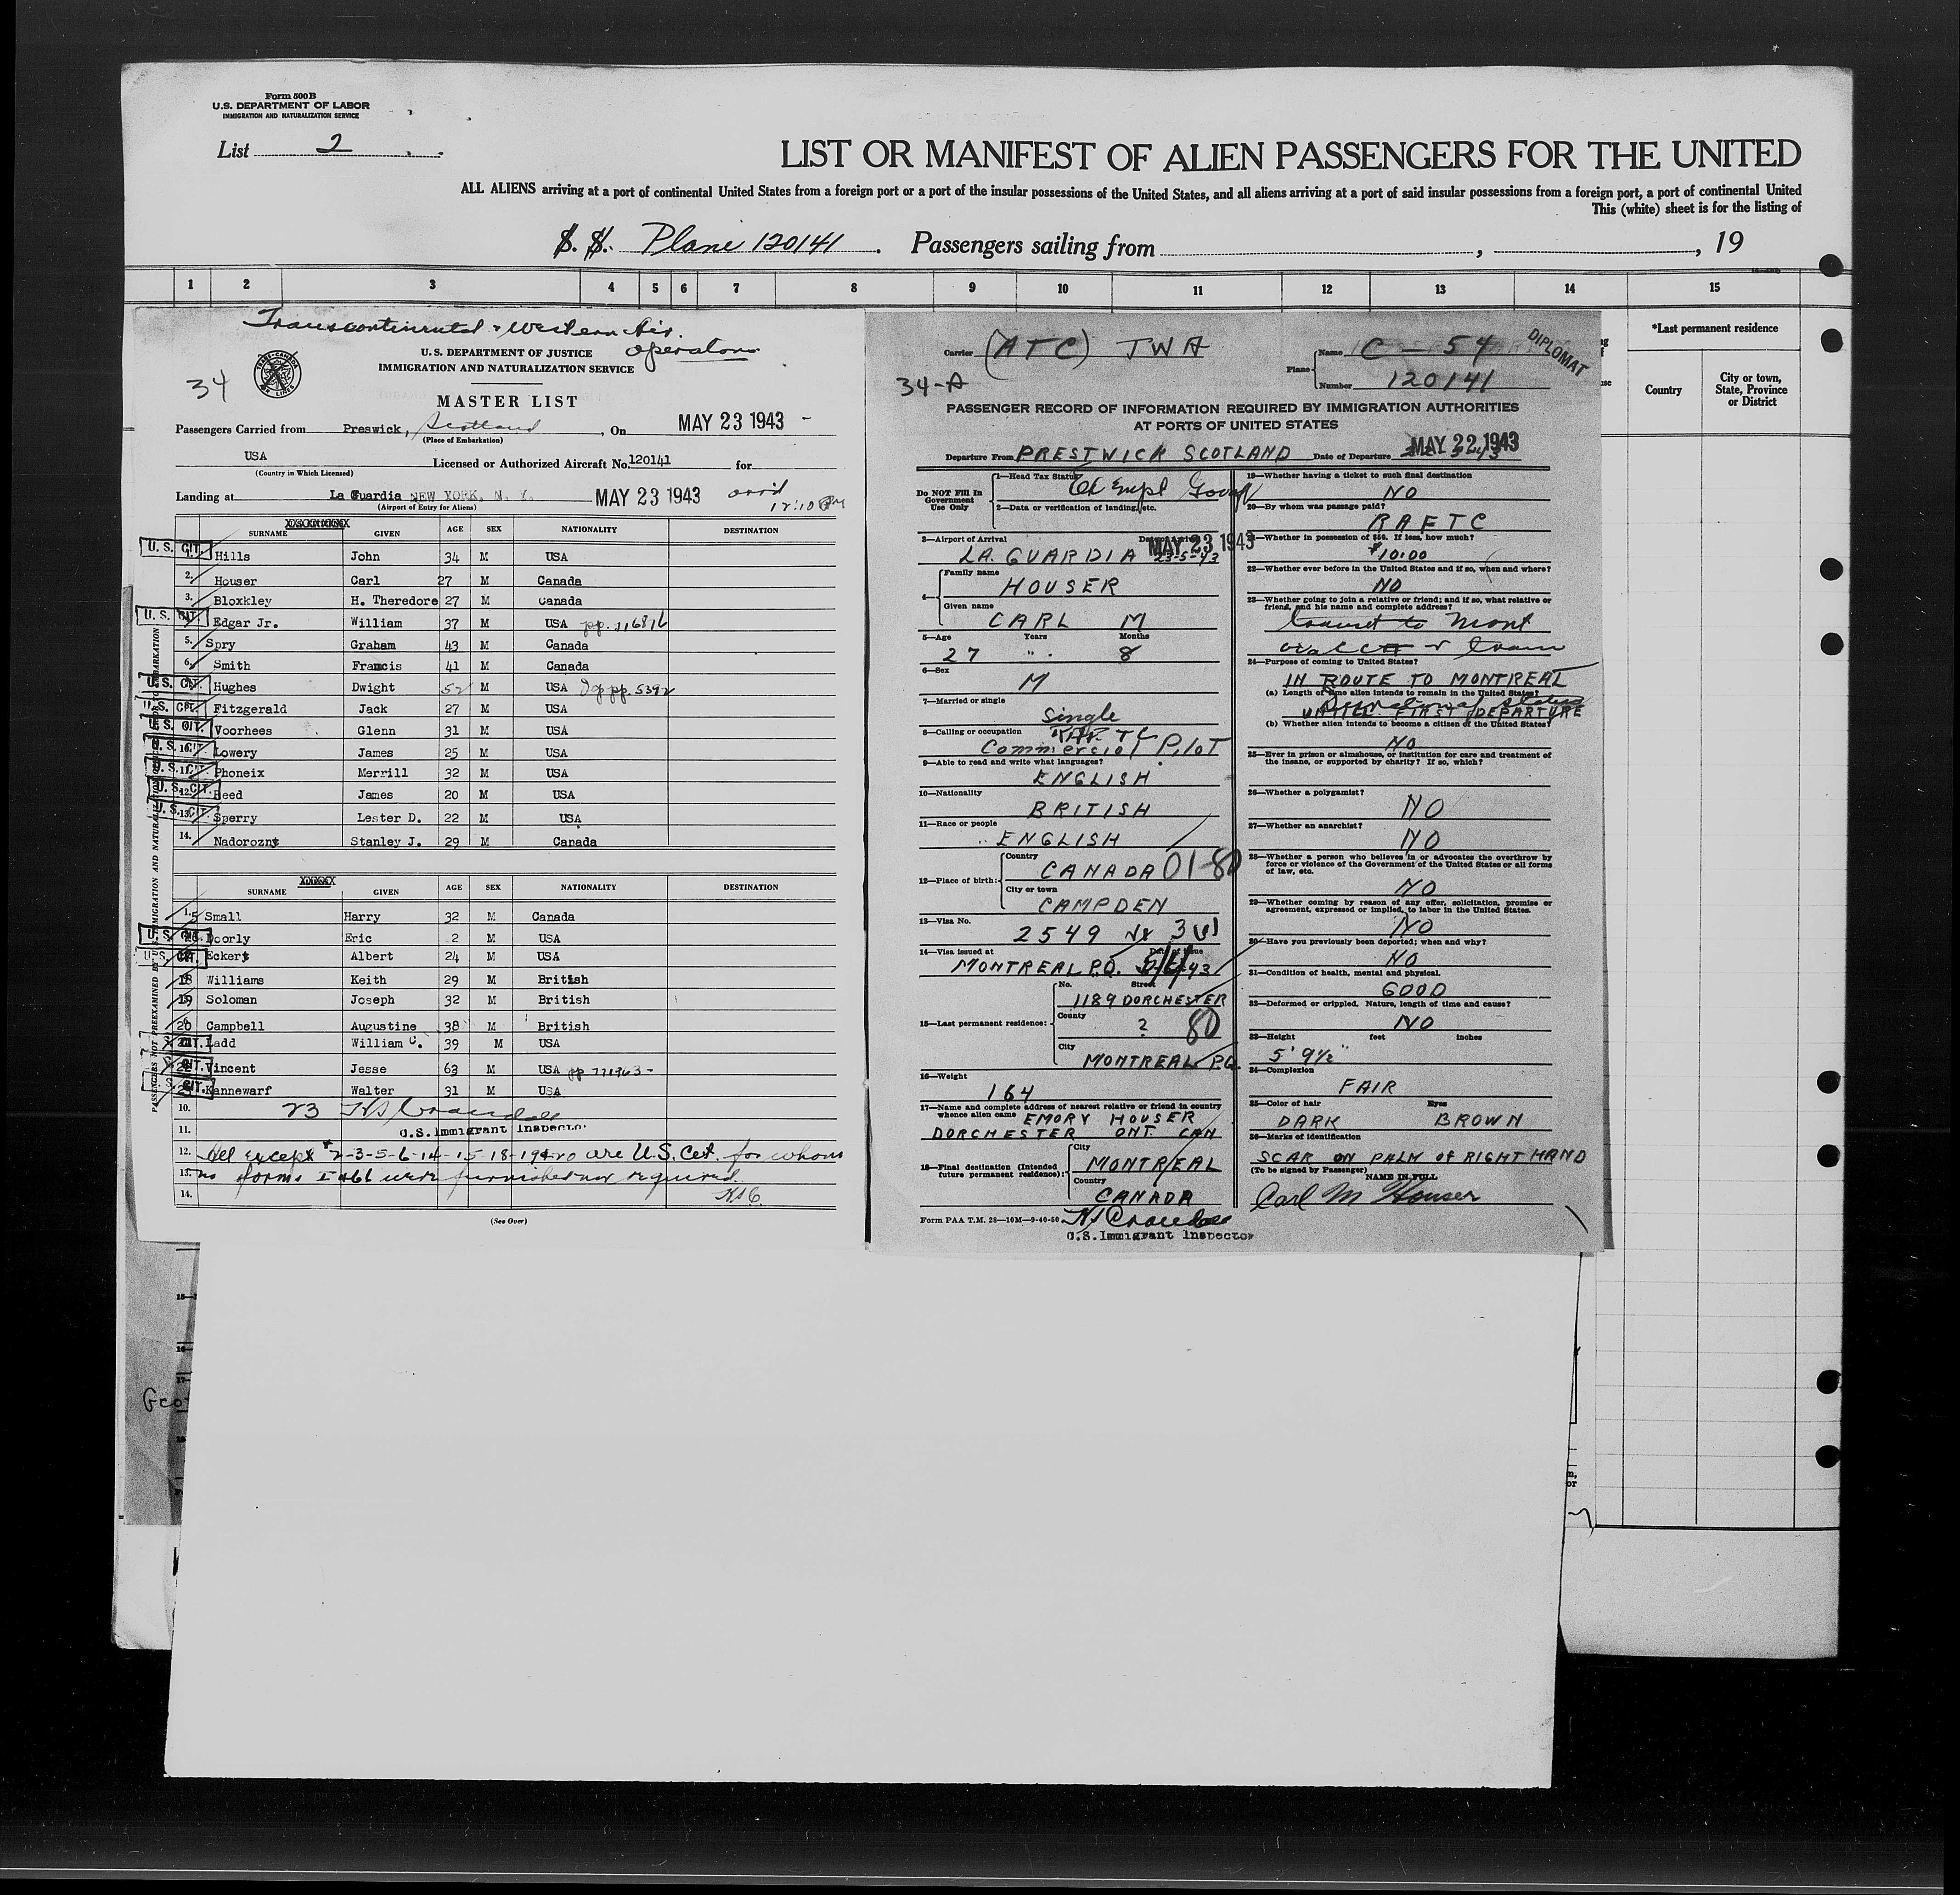 Form 500 B
U.S. DEPARTMENT OF LABOR
IMMIGRATION AND NATURALIZATION SERVICE
List 2
LIST OR MANIFEST OF ALIEN PASSENGERS FOR THE UNITED
ALL ALIENS arriving at a port of continental United States from a foreign port or a port of the insular possessions of the United States, and all aliens arriving at a port of said insular possessions from a foreign port, a port of continental United
This (white) sheet is for the listing of
S. S. Plane 120141 . Passengers sailing from , , 19
1 2 3 4 5 6 7 8 9 10 11 12 13 14 15
*Last permanent residence
Country City or town, State, Province or District
Transcontinental & Western Air.
Operators
34
U.S. DEPARTMENT OF JUSTICE
IMMIGRATION AND NATURALIZATION SERVICE
MASTER LIST
Passengers Carried from Preswick, Scotland , On MAY 23 1943 -
(Place of Embarkation)
USA Licensed or Authorized Aircraft No. 120141 for
(Country in Which Licensed)
Landing at La Guardia NEW YORK, N. Y. MAY 23 1943 arrd
(Airport of Entry for Aliens)
SURNAME GIVEN AGE SEX NATIONALITY DESTINATION
U. S. CIT. 1. Hills John 34 M USA
2. Houser Carl 27 M Canada
3. Bloxkley H. Theredore 27 M Canada
U. S. CIT. Edgar Jr. William 37 M USA pp. 116816
5. Spry Graham 43 M Canada
6. Smith Francis 41 M Canada
U. S. CIT. Hughes Dwight 52 M USA pp. 5392
U. S. CIT. Fitzgerald Jack 27 M USA
U. S. CIT. Voorhees Glenn 31 M USA
U. S. CIT. Lowery James 25 M USA
U. S. CIT. Phoneix Merrill 32 M USA
U. S. CIT. Reed James 20 M USA
U. S. CIT. Sperry Lester D. 22 M USA
14. Nadorozny Stanley J. 29 M Canada
SURNAME GIVEN AGE SEX NATIONALITY DESTINATION
15 Small Harry 32 M Canada
U. S. CIT. Doorly Eric 2 M USA
U. S. CIT. Eckert Albert 24 M USA
18 Williams Keith 29 M British
19 Soloman Joseph 32 M British
20 Campbell Augustine 38 M British
CIT. Ladd William C. 39 M USA
CIT. Vincent Jesse 63 M USA pp 771963-
S. CIT. Kannewarf Walter 31 M USA
10. 23 H S Crandall
11. U.S. Immigrant Inspector
12. All except #2-3-5-6-14-15-18-19&20 are U.S. Cit. for whom
13. no forms I 466 were furnished nor required.
14. HSC
(See Over)
Carrier (ATC) TWA
Plane Name C-54
Number 120141
DIPLOMAT
34-A
PASSENGER RECORD OF INFORMATION REQUIRED BY IMMIGRATION AUTHORITIES
AT PORTS OF UNITED STATES
Departure From PRESTWICK SCOTLAND Date of Departure MAY 22 1943
Do NOT Fill In Government Use Only
1—Head Tax Status
2—Data or verification of landing, etc.
3—Airport of Arrival
LA. GUARDIA MAY 23 1943 23-5-43
4— Family name
HOUSER
Given name
CARL M
5—Age Years Months
27 8
6—Sex
M
7—Married or single
Single
8—Calling or occupation
Commercial Pilot
9—Able to read and write what languages?
ENGLISH
10—Nationality
BRITISH
11—Race or people
ENGLISH
12—Place of birth: Country
CANADA 01-80
City or town
CAMPDEN
13—Visa No.
2549
14—Visa issued at Date of Issue
MONTREAL P.Q.
15—Last permanent residence: No. Street
1189 DORCHESTER
County
? 80
City
MONTREAL P.Q.
16—Weight
164
17—Name and complete address of nearest relative or friend in country whence alien came
EMORY HOUSER
DORCHESTER ONT. CAN
18—Final destination (Intended future permanent residence): City
MONTREAL
Country
CANADA
Form PAA T.M. 28—10M—9-40-50
U.S. Immigrant Inspector
19—Whether having a ticket to such final destination
NO
20—By whom was passage paid?
RAFTC
21—Whether in possession of $50. If less, how much?
$10.00
22—Whether ever before in the United States and if so, when and where?
NO
23—Whether going to join a relative or friend; and if so, what relative or friend, and his name and complete address?
24—Purpose of coming to United States?
IN ROUTE TO MONTREAL
(a) Length of time alien intends to remain in the United States?
UNTILL FIRST DEPARTURE
(b) Whether alien intends to become a citizen of the United States?
NO
25—Ever in prison or almshouse, or institution for care and treatment of the insane, or supported by charity? If so, which?
26—Whether a polygamist?
NO
27—Whether an anarchist?
NO
28—Whether a person who believes in or advocates the overthrow by force or violence of the Government of the United States or all forms of law, etc.
NO
29—Whether coming by reason of any offer, solicitation, promise or agreement, expressed or implied, to labor in the United States.
NO
30—Have you previously been deported; when and why?
NO
31—Condition of health, mental and physical.
GOOD
32—Deformed or crippled. Nature, length of time and cause?
NO
33—Height feet inches
5' 9½"
34—Complexion
FAIR
35—Color of hair Eyes
DARK BROWN
36—Marks of identification
SCAR ON PALM OF RIGHT HAND
(To be signed by Passenger)
NAME IN FULL
Carl M Houser